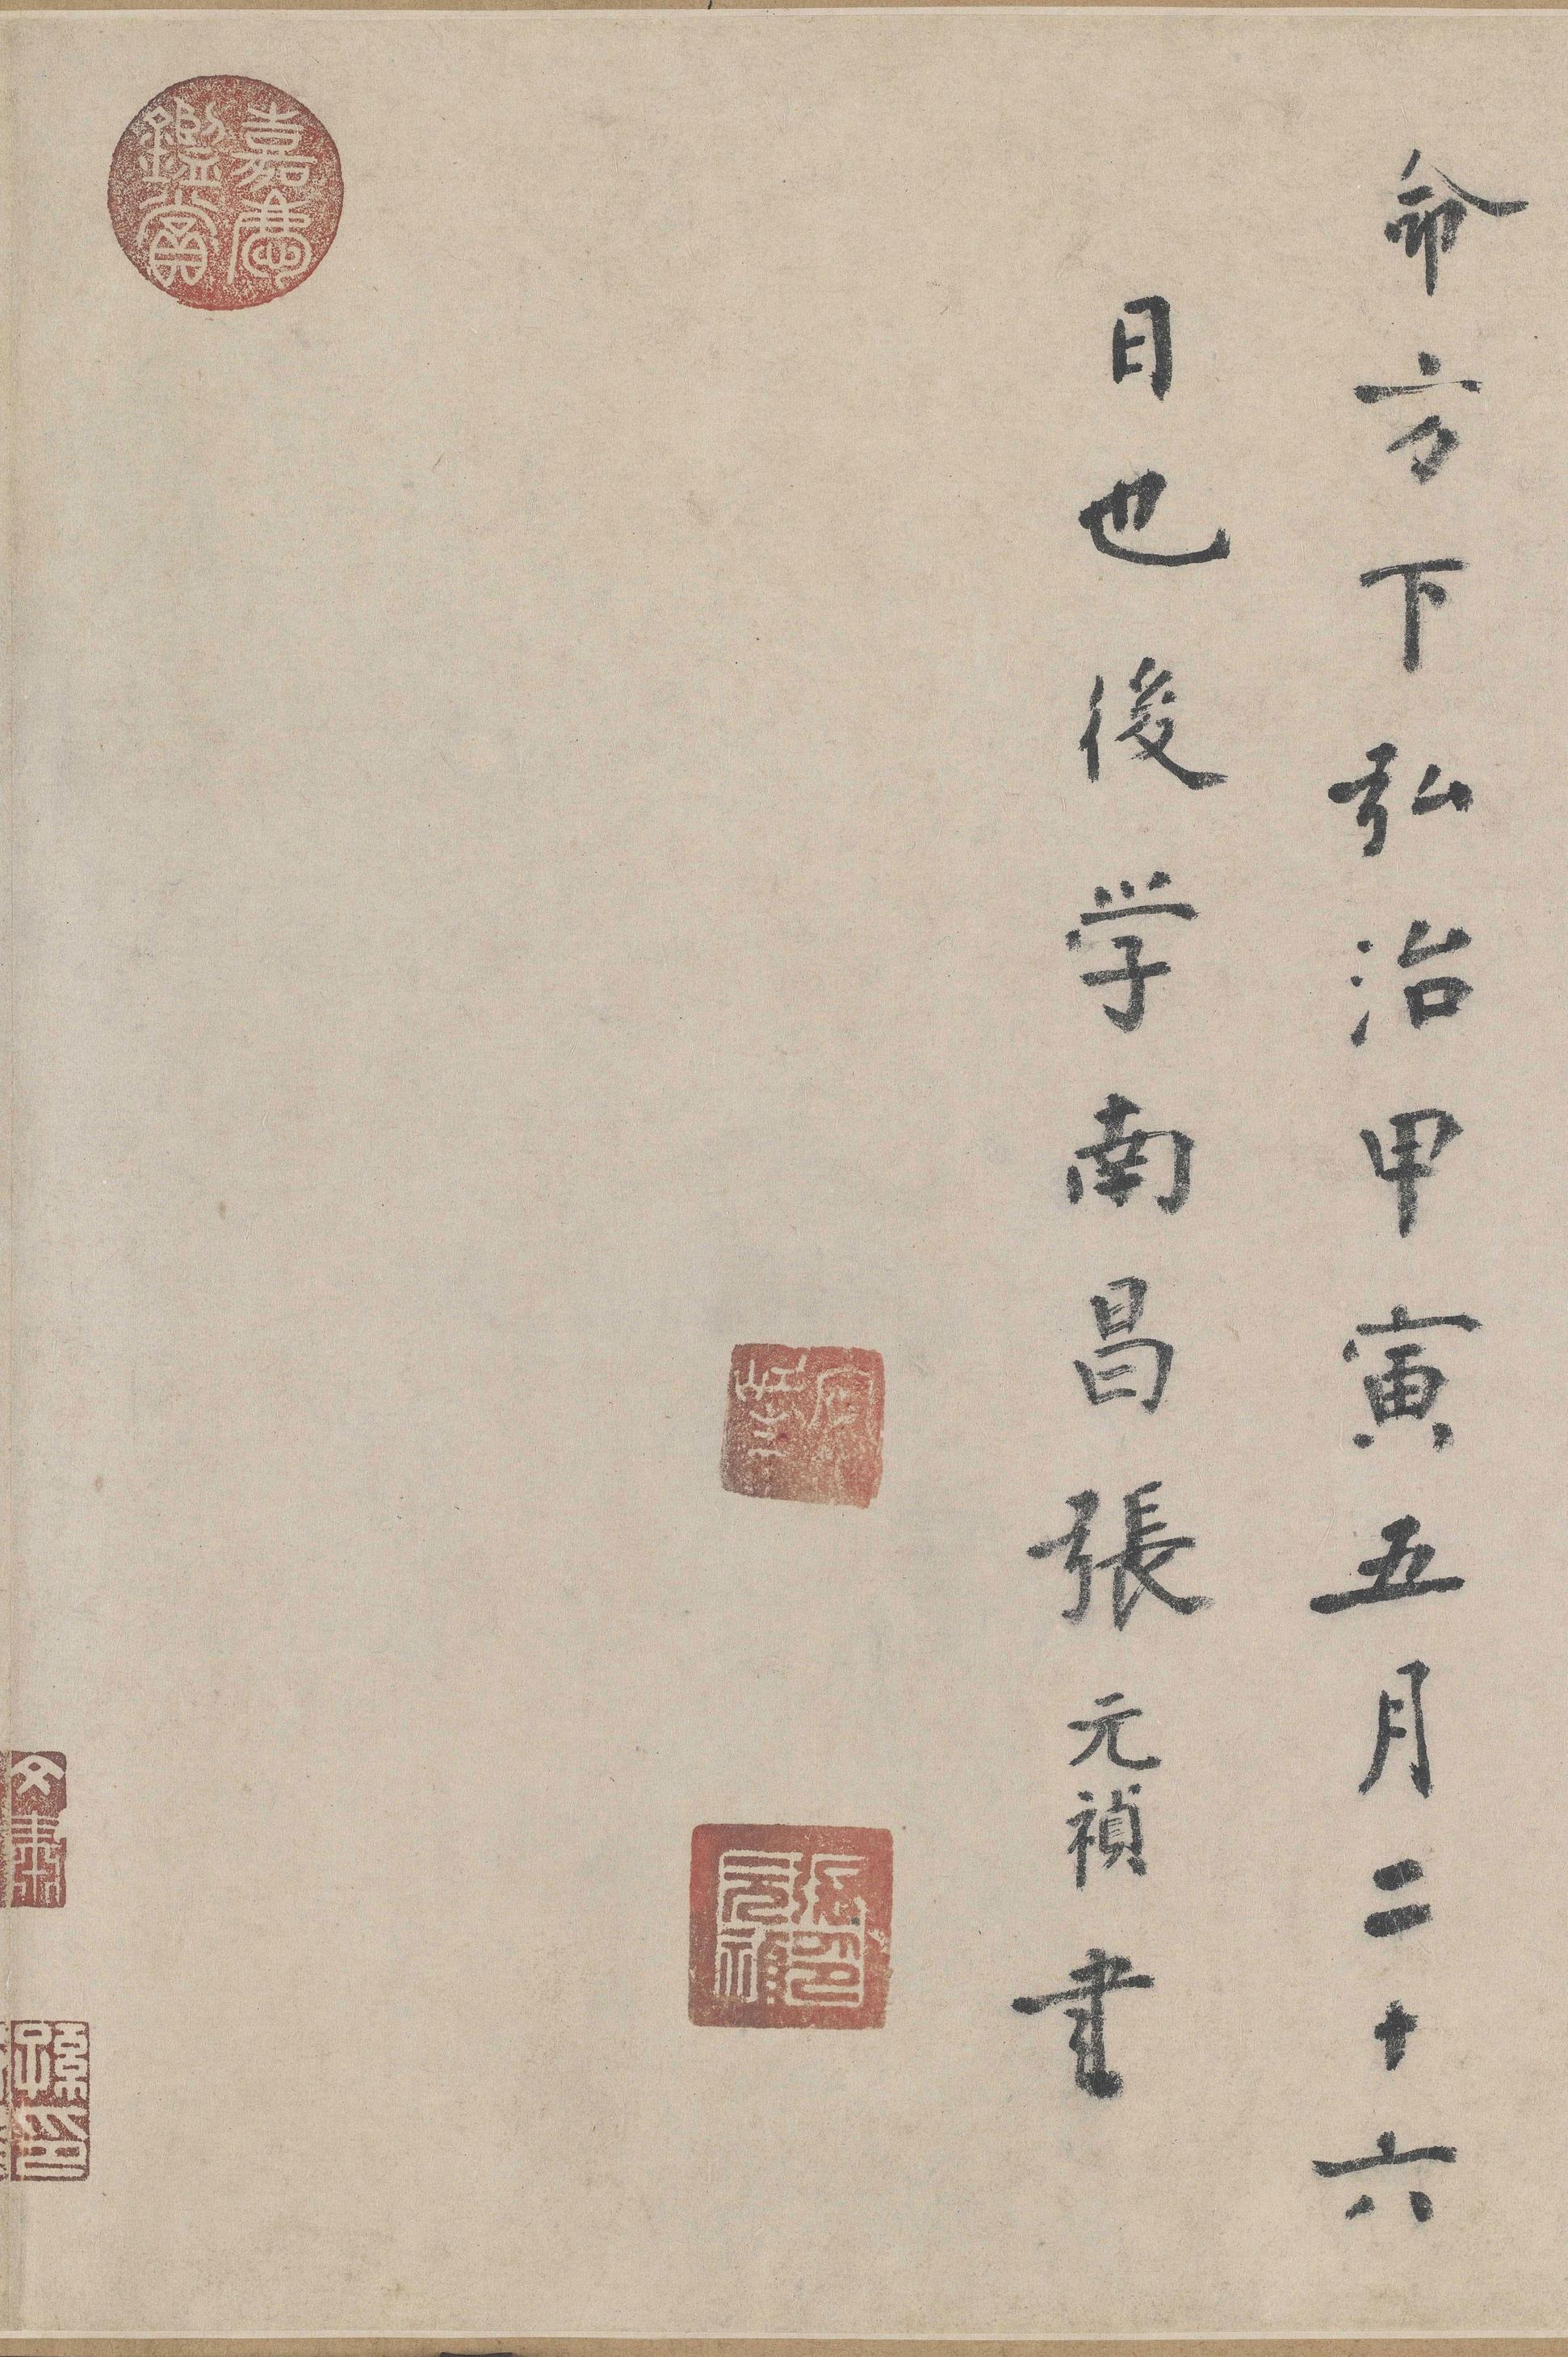 命方下弘治甲寅五月二十六
日也後学南昌張元禎書
嘉慶鑑賞
張元禎印